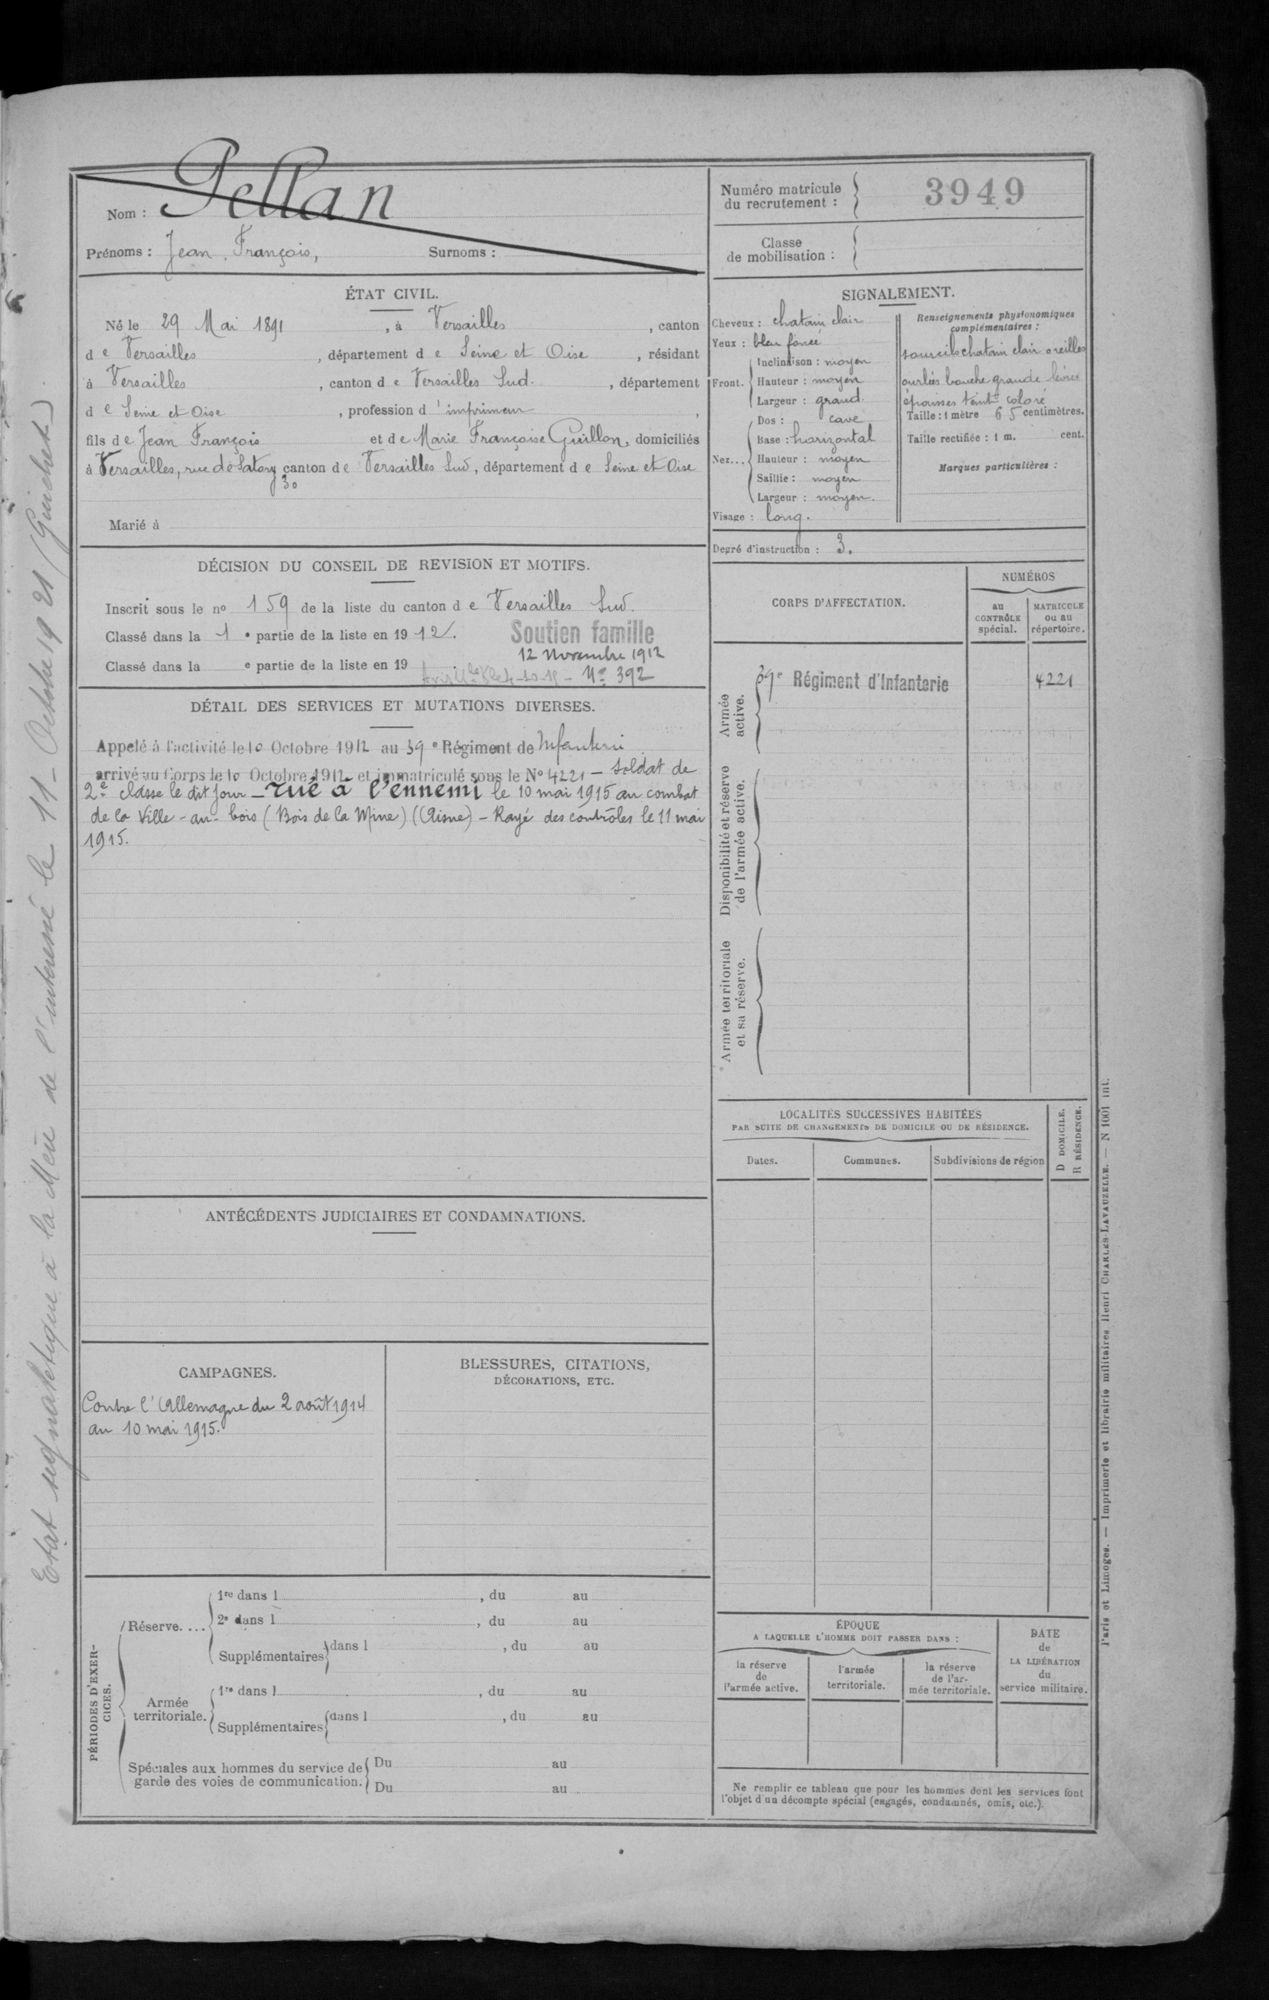 Nom : Pellan
Prénoms : Jean, François, Surnoms :
ÉTAT CIVIL.
Né le 29 Mai 1891, à Versailles, canton
de Versailles, département de Seine et Oise, résidant
à Versailles, canton de Versailles Sud., département
de Seine et Oise, profession d'imprimeur,
fils de Jean François et de Marie Françoise Guillon, domiciliés
à Versailles, rue de Satory canton de Versailles Sud, département de Seine et Oise
30
Marié à
DÉCISION DU CONSEIL DE REVISION ET MOTIFS.
Inscrit sous le no 159 de la liste du canton de Versailles Sud.
Classé dans la 1e partie de la liste en 1912. Soutien famille
12 Novembre 1912
Classé dans la e partie de la liste en 19
No 392
DÉTAIL DES SERVICES ET MUTATIONS DIVERSES.
Appelé à l'activité le 10 Octobre 1912 au 39e Régiment de Infanterie
arrivé au Corps le 10 Octobre 1912 et immatriculé sous le No 4221 - soldat de
2e classe le dit jour - Tué à l'ennemi le 10 mai 1915 au combat
de la Ville-au-bois (Bois de la Mine) (Aisne) - Rayé des contrôles le 11 mai
1915.
ANTÉCÉDENTS JUDICIAIRES ET CONDAMNATIONS.
CAMPAGNES.
Contre l'Allemagne du 2 août 1914
au 10 mai 1915.
BLESSURES, CITATIONS,
DÉCORATIONS, ETC.
PÉRIODES D'EXER-
CICES.
Réserve....
1re dans l , du au
2e dans l , du au
Supplémentaires dans l , du au
Armée
territoriale.
1re dans l , du au
Supplémentaires dans l , du au
Spéciales aux hommes du service de
garde des voies de communication.
Du au
Du au
Numéro matricule
du recrutement :
3949
Classe
de mobilisation :
SIGNALEMENT.
Cheveux : chatain clair
Yeux : bleu foncé
Front.
Inclinaison : moyen
Hauteur : moyen
Largeur : grand
Nez...
Dos : cave
Base : horizontal
Hauteur : moyen
Saillie : moyen
Largeur : moyen.
Visage : long.
Renseignements physionomiques
complémentaires :
sourcils chatain clair oreilles
ourlées bouche grande lèvres
épaisses teint coloré
Taille : 1 mètre 65 centimètres.
Taille rectifiée : 1 m. cent.
Marques particulières :
Degré d'instruction : 3.
CORPS D'AFFECTATION.
NUMÉROS
au
CONTRÔLE
spécial.
MATRICULE
ou au
répertoire.
Armée
active.
39e Régiment d'Infanterie 4221
Disponibilité et réserve
de l'armée active.
Armée territoriale
et sa réserve.
LOCALITÉS SUCCESSIVES HABITÉES
PAR SUITE DE CHANGEMENTS DE DOMICILE OU DE RÉSIDENCE.
Dates.
Communes.
Subdivisions de région
D DOMICILE.
R RÉSIDENCE.
ÉPOQUE
A LAQUELLE L'HOMME DOIT PASSER DANS :
la réserve
de
l'armée active.
l'armée
territoriale.
la réserve
de l'ar-
mée territoriale.
DATE
de
LA LIBÉRATION
du
service militaire.
Ne remplir ce tableau que pour les hommes dont les services font
l'objet d'un décompte spécial (engagés, condamnés, omis, etc.).
Paris et Limoges. — Imprimerie et librairie militaires Henri CHARLES-LAVAUZELLE. — N 1001 int.
Etat signalétique à la Méie de l'interessé le 11 - Octobre 1921 (Guichet)